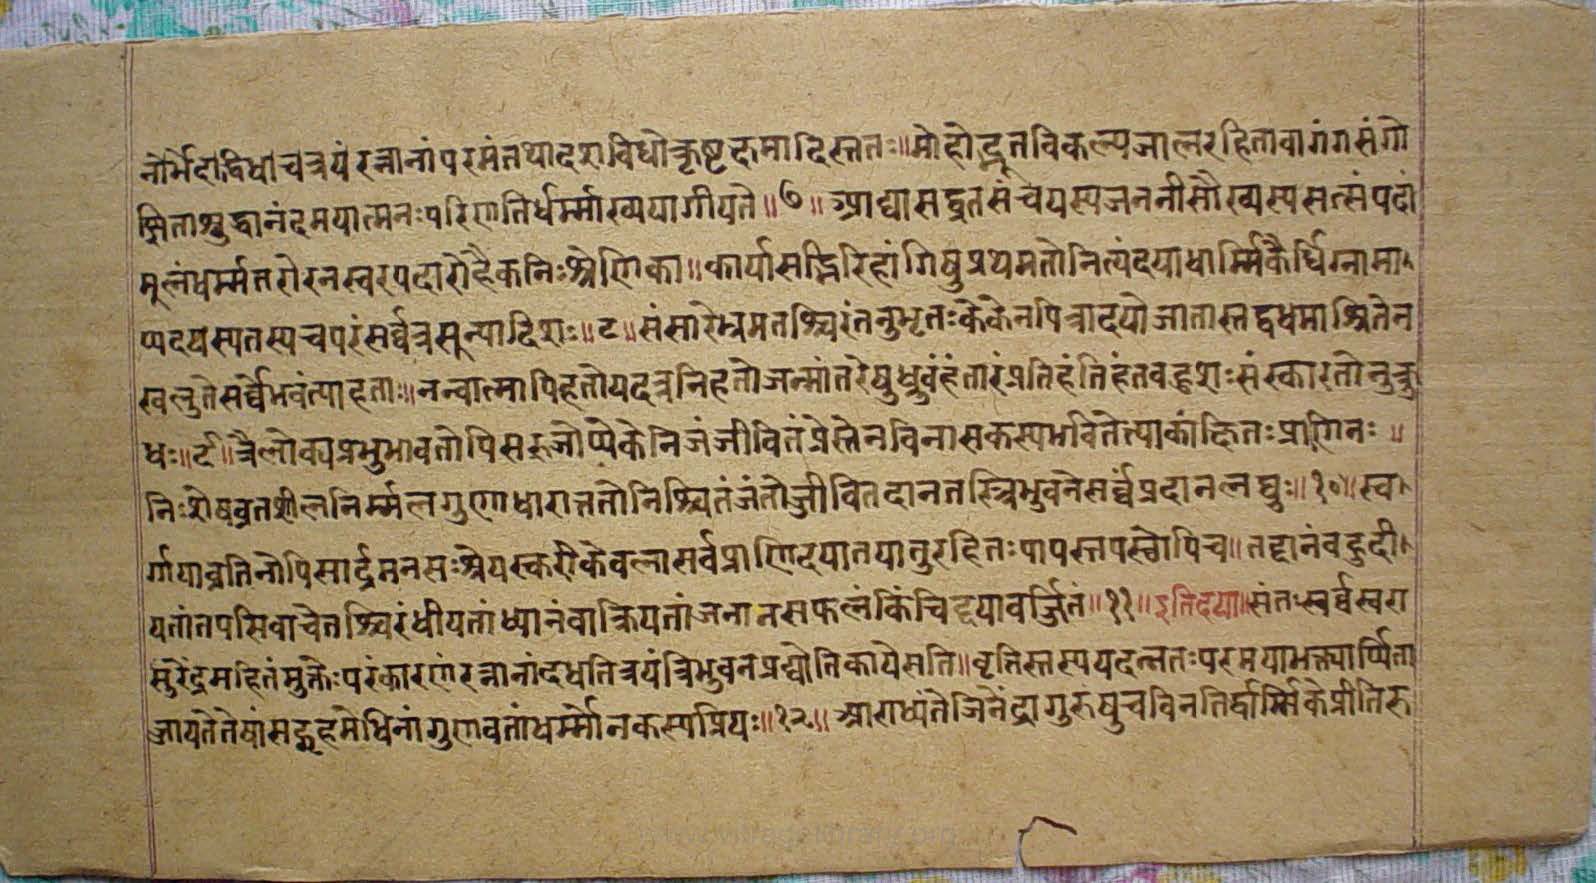 नोर्भेदाद्विधा च त्रयं रत्नानां परमं तथा दशविधोत्कृष्टक्षमादिस्ततः॥ मोहोद्भूतविकल्पजालरहिता वागंगसंगो
ज्झिता शुद्धानंदमयात्मनः परिणतिर्धर्म्माख्यया गीयते॥७॥ आद्या सद्व्रतसंचयस्य जननी सौख्यस्य सत्संपदां
मूलं धर्म्मतरोरनस्वरपदारोहैकनिःश्रेणिका॥ कार्या सद्भिरिहांगिषु प्रथमतो नित्यं दया धार्म्मिकैर्धिग्नामा
प्यदयस्य तस्य च परं सर्व्वत्र सून्या दिशः॥८॥ संसारे भ्रमतश्चिरं तनुभृतः के के न पित्रादयो जातास्तद्वधमाश्रितेन
खलु ते सर्व्वे भवंत्याहताः॥ नन्वात्मापि हतो यदत्र निहतो जन्मांतरेषु ध्रुवं हंतारं प्रतिहंति हंत बहुशः संस्कारतो नु क्रु
धः॥९॥ त्रैलोक्यप्रभुभावतोपि सरुजोप्येकं निजं जीवितं प्रेस्तेन विना स कस्य भवितेत्याकांक्षितः प्राणिनः॥
निःशेषव्रतशीलनिर्म्मलगुणाधारात्ततो निश्चितं जंतोर्जीवितदानतस्त्रिभुवने सर्व्वप्रदानं लघुः॥१०॥ स्व
र्गायाव्रतिनोपि सार्द्रमनसः श्रेयस्करी केवला सर्वप्राणिदया तया तु रहितः पापस्तपस्थोपि च॥ तद्दानं बहु दी
यतां तपसि वा चेतश्चिरं धीयतां ध्यानं वा क्रियतां जना न सफलं किंचिद्दयावर्जितं॥११॥ इति दया॥ संतः सर्व्वस्वरा
सुरेंद्रमहितं मुक्तेः परं कारणं रत्नानां दधति त्रयं त्रिभुवनप्रद्योति काये सति॥ वृतिस्तस्य यदन्नतः परमया भक्त्यार्प्पिता
ज्जायते तेषां सद्गृहमेधिनां गुणवतां धर्म्मो न कस्य प्रियः॥१२॥ आराध्यंते जिनेंद्रा गुरुषु च विनतिर्द्धार्म्मिके प्रीतिरु